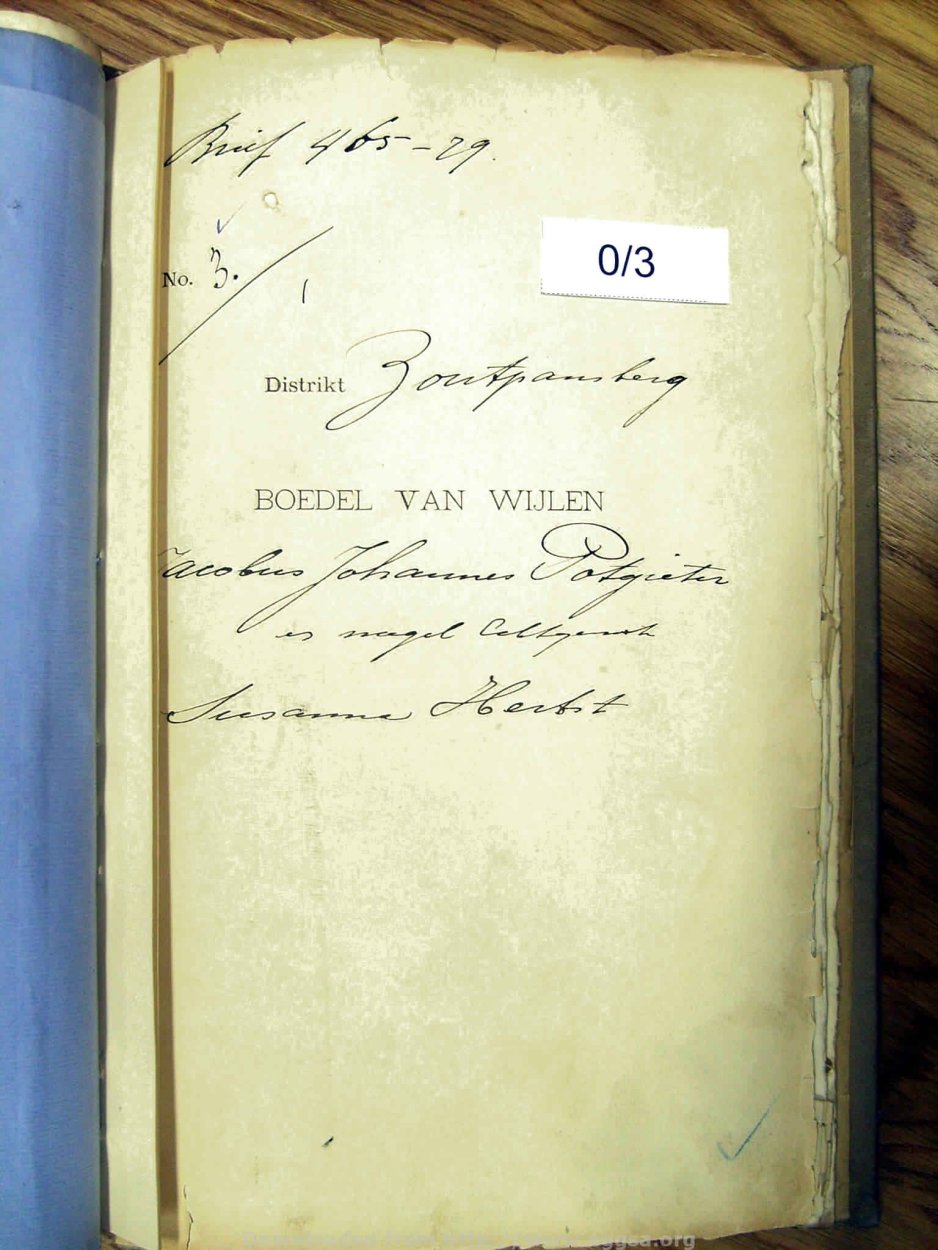 Brief 465-79.
No. 3. / 1
0/3
Distrikt Zoutpansberg
BOEDEL VAN WIJLEN
Jacobus Johannes Potgieter
en nagel
Susanna Herbst
ggsa.org